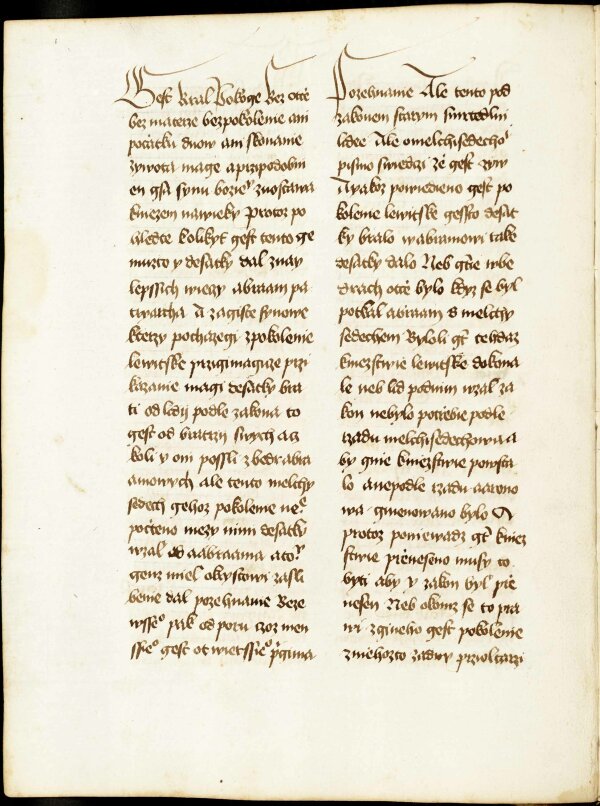 Gest Kral Pokoge Bez otce
bez materze bez pokolenie ani
počatku dnow ani skonanie
zywota mage a pripodobni
en gsa synu bozieᵐ zuostawa
knezem nawieky Protoz po
hledte koliky gest tento ge
muzto y desatky dal znay
lepssich wiezy abraam pa
tryarcha A zagiste synowe
kterzy pochazegi z pokolenie
lewitske przigimagicze przi
kazanie magi desatky bra
ti od lidij podle zakona to
gest od bratrzij swych acz
koli y oni possli z bedr abra
amowych ale tento melchy
sedech gehoz pokolenie neᵉ
počteno mezy nimi desatky
wzal od aabraama a toᵒ
genz miel otcystowi zasli
benie dal pozehnanie Beze
wsseᵒ pak odporu czoz men
ssieᵒ gest ot wietssieᵒ prigima
Pozehnanie Ale tento pod
zakonem starym smrtedlni
lidee Ale o melchisedechoⁱ
pismo swiedczi ze gest zyw
A yakoz powiedieno gest po
kolenie lewitske gessto desat
ky bralo w abramowi take
desatky dalo Neb gt͛ie w be
drach otce bylo kdyz se byl
potkal abraam s melchy
sedechem Byloli gt͛ tehdaz
kniezstwie lewitske dokona
le neb lid pod nim wzal za
kon nebylo potrebie podle
rzadu melchisedechowa a
by gine kniezstwie powsta
lo a nepodle rzadu aarono
wa gmenowano bylo A
protoz poniewadz gt͛ kniez
stwie preneseno musy to
byti aby y zakon byl pre
nesen Neb o komz se to pra
wi z gineho gest pokolenie
z niehozto zadny przi oltarzi